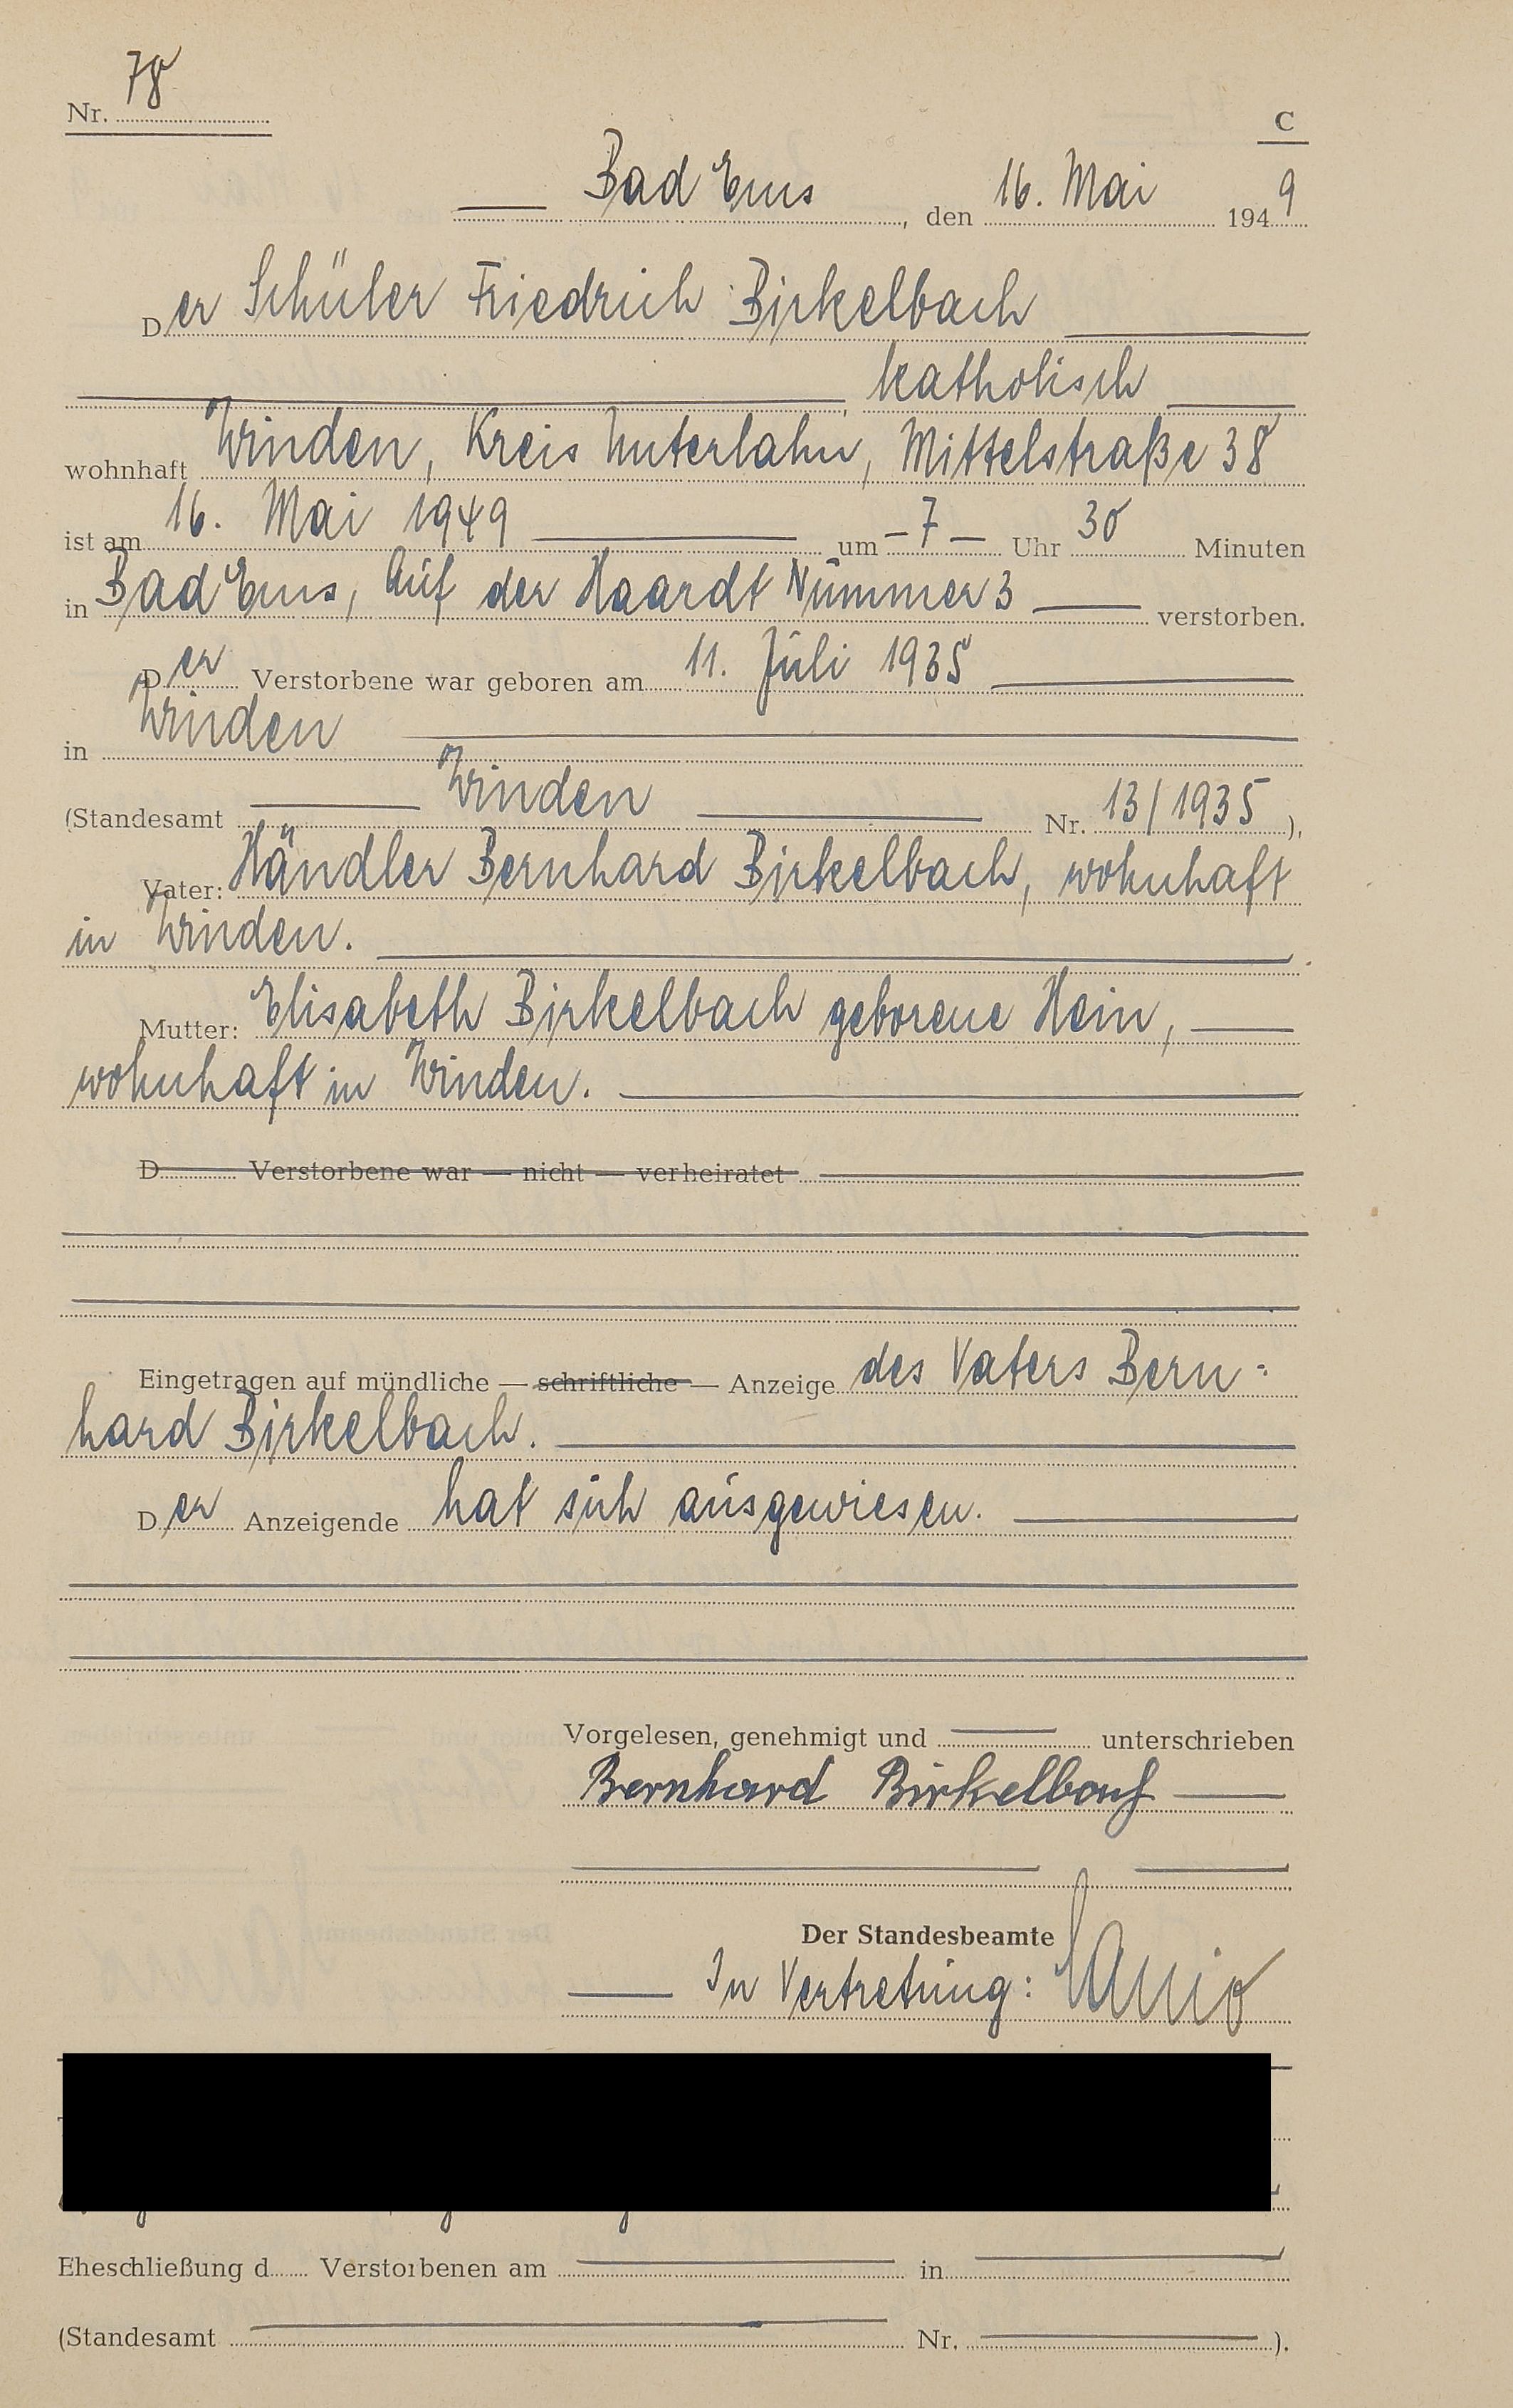 Nr. 78
C
Bad Ems, den 16. Mai 1949
Der Schüler Friedrich Birkelbach
katholisch
wohnhaft Winden, Kreis Unterlahn, Mittelstraße 38
ist am 16. Mai 1949 um – 7 – Uhr 30 Minuten
in Bad Ems, Auf der Haardt Nummer 3 verstorben.
Der Verstorbene war geboren am 11. Juli 1935
in Winden
(Standesamt Winden Nr. 13/1935),
Vater: Händler Bernhard Birkelbach, wohnhaft
in Winden.
Mutter: Elisabeth Birkelbach geborene Hein,
wohnhaft in Winden.
D Verstorbene war — nicht — verheiratet
Eingetragen auf mündliche — schriftliche — Anzeige des Vaters Bern-
hard Birkelbach.
Der Anzeigende hat sich ausgewiesen.
Vorgelesen, genehmigt und unterschrieben
Bernhard Birkelbach
Der Standesbeamte
In Vertretung:
Eheschließung d Verstorbenen am in
(Standesamt Nr. ).